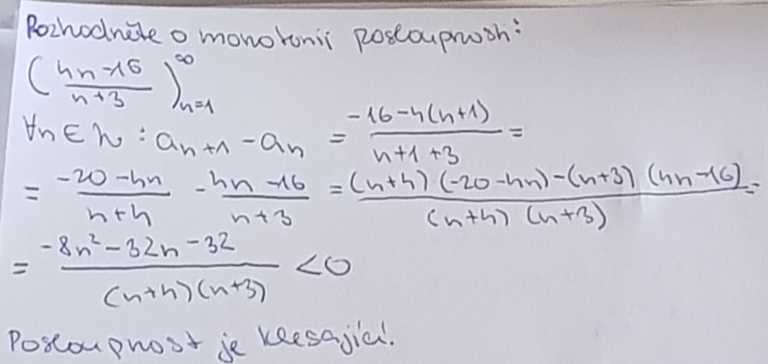 Rozhodněte o monotonii posloupnosti:
(\frac{4n-16}{n+3})_{n=1}^{∞}
∀n∈N : a_{n+1} - a_n = \frac{-16-4(n+1)}{n+1+3} =
= \frac{-20-4n}{n+4} - \frac{4n-16}{n+3} = \frac{(n+4)(-20-4n)-(n+3)(4n-16)}{(n+4)(n+3)} =
= \frac{-8n²-32n-32}{(n+4)(n+3)} <0
Posloupnost je klesající.